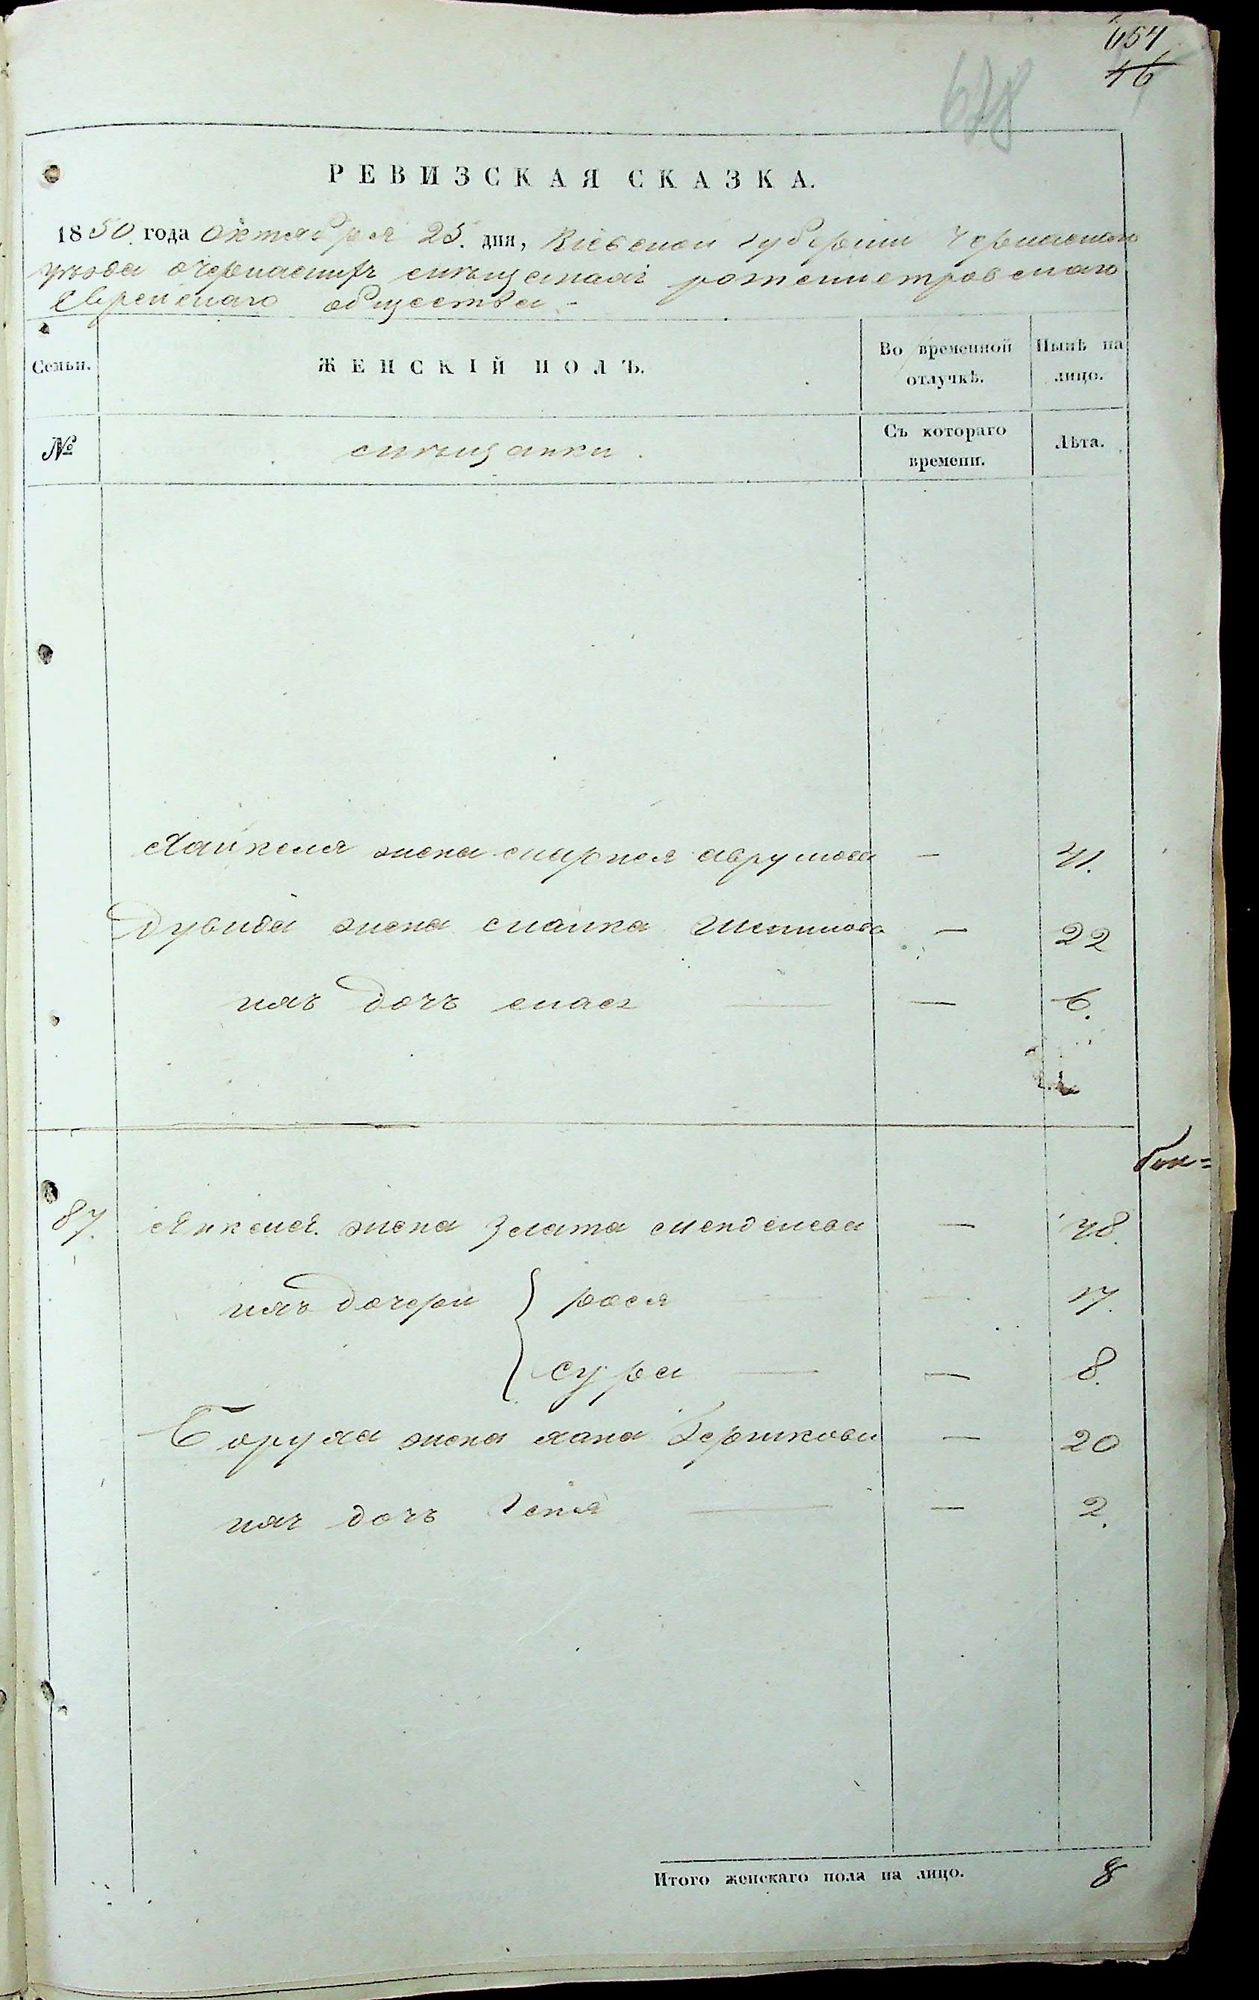 654
46
678
РЕВИЗСКАЯ СКАЗКА.
1850 года октября 25. дня, Кіевской губерніи Черкаскаго
уезда о мещанахъ ротмистровскаго
Еврейскаго общества
Семьи. ЖЕНСКІЙ ПОЛЪ. Во временной отлучкѣ. Нынѣ на лицо.
№ мещанки. Съ котораго времени. Лѣта.
Хайкеля жена Мирпея Аврумова — 41.
Дувида жена Малка — 22
ихъ дочъ — 6.
87. Янкеля жена Злата Менделева — 48.
ихъ дочери { рося — 17.
сура — 8.
Боруха жена хана Гершкова — 20
ихъ дочъ Геня — 2.
Итого женскаго пола на лицо. 8